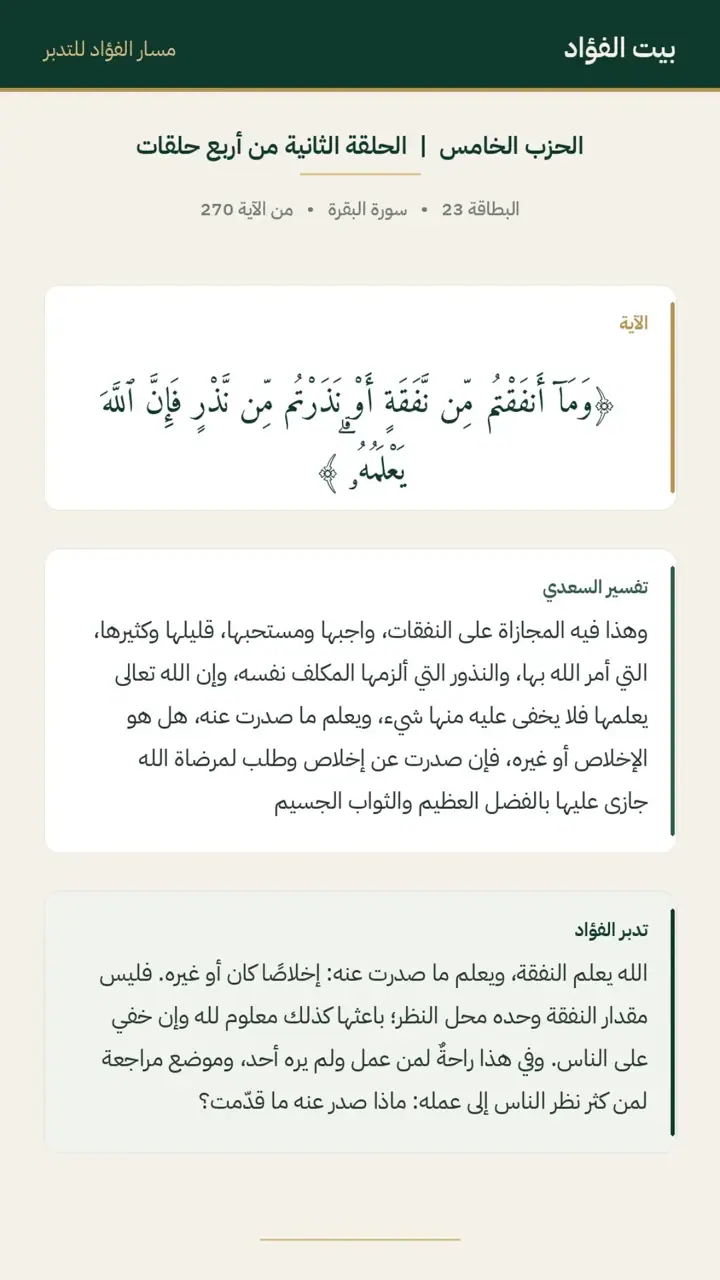 بيت الفؤاد
مسار الفؤاد للتدبر
الحزب الخامس | الحلقة الثانية من أربع حلقات
البطاقة 23 • سورة البقرة • من الآية 270
الآية
﴿وَمَآ أَنفَقْتُم مِّن نَّفَقَةٍ أَوْ نَذَرْتُم مِّن نَّذْرٍ فَإِنَّ ٱللَّهَ
يَعْلَمُهُۥۗ ﴾
تفسير السعدي
وهذا فيه المجازاة على النفقات، واجبها ومستحبها، قليلها وكثيرها،
التي أمر الله بها، والنذور التي ألزمها المكلف نفسه، وإن الله تعالى
يعلمها فلا يخفى عليه منها شيء، ويعلم ما صدرت عنه، هل هو
الإخلاص أو غيره، فإن صدرت عن إخلاص وطلب لمرضاة الله
جازى عليها بالفضل العظيم والثواب الجسيم
تدبر الفؤاد
الله يعلم النفقة، ويعلم ما صدرت عنه: إخلاصًا كان أو غيره. فليس
مقدار النفقة وحده محل النظر؛ باعثها كذلك معلوم لله وإن خفي
على الناس. وفي هذا راحةٌ لمن عمل ولم يره أحد، وموضع مراجعة
لمن كثر نظر الناس إلى عمله: ماذا صدر عنه ما قدّمت؟